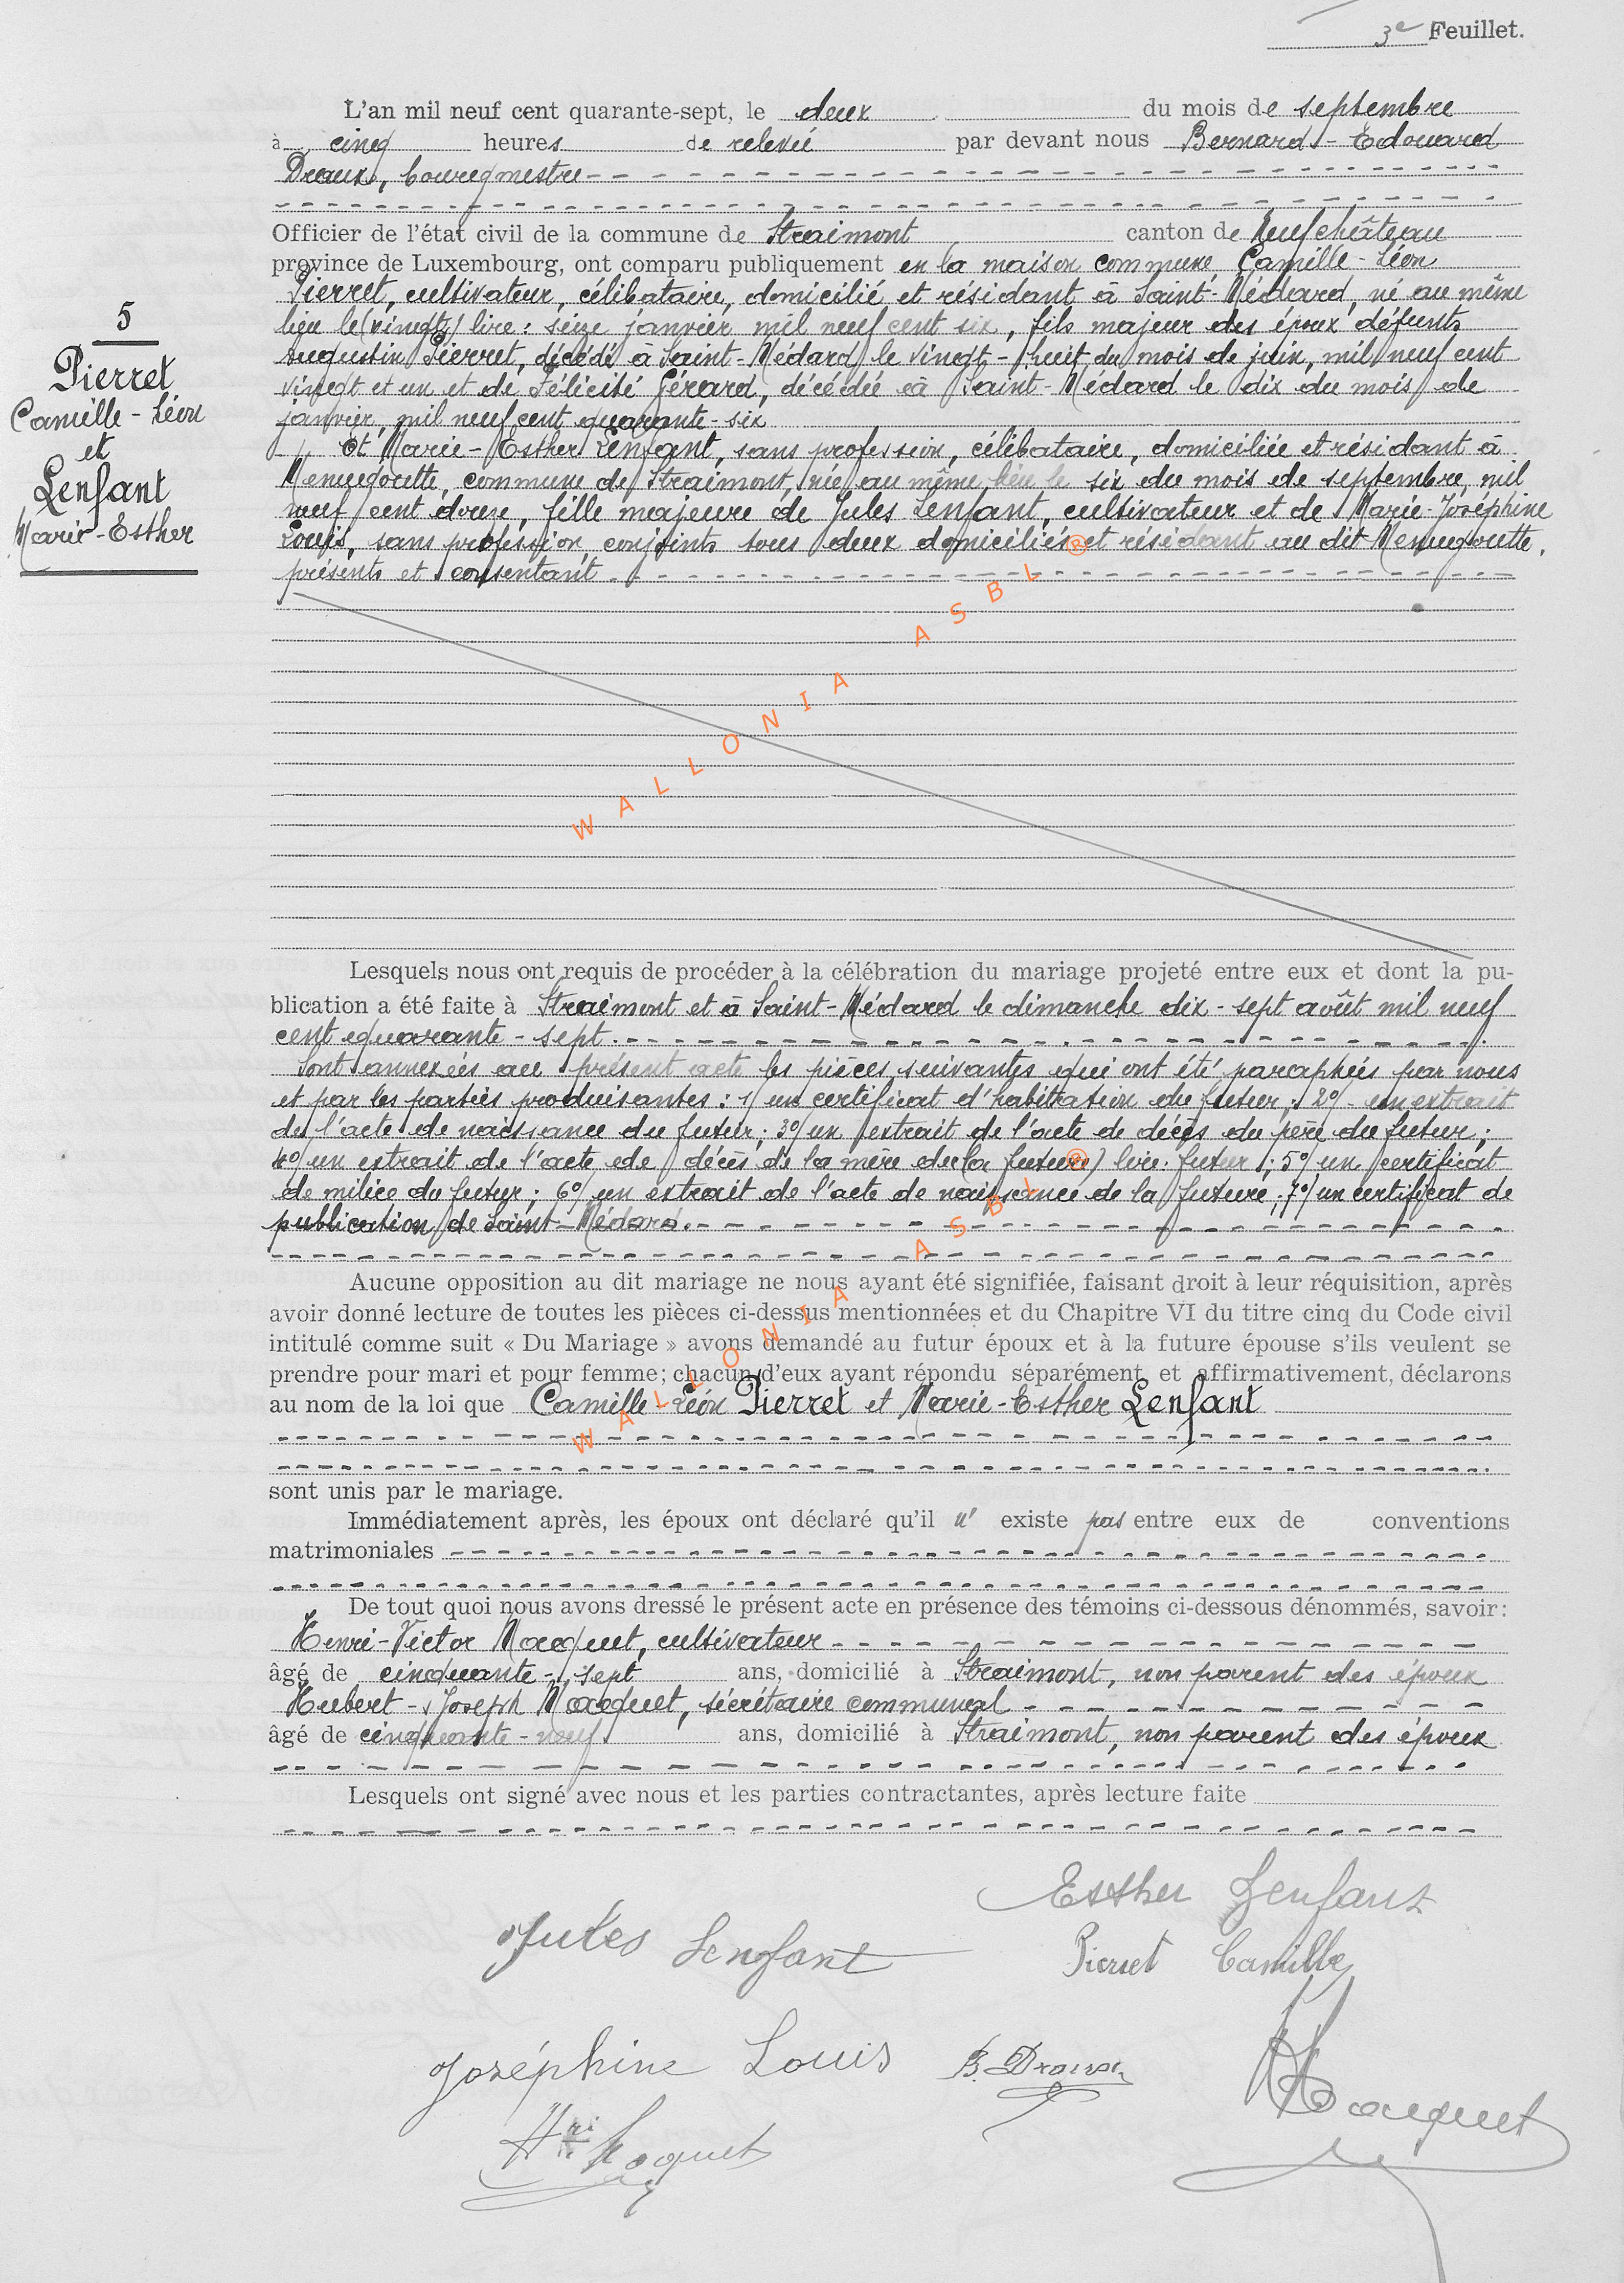 3e Feuillet.
L'an mil neuf cent quarante-sept, le deux du mois de septembre
à cinq heures de relevée par devant nous Bernard-Edouard
Draux, bourgmestre
Officier de l'état civil de la commune de Straimont canton de Neufchâteau
province de Luxembourg, ont comparu publiquement en la maison commune, Camille-Léon
Pierret, cultivateur, célibataire, domicilié et résidant à Saint-Médard, né au même
lieu le (vingt) lire : seize janvier mil neuf cent six, fils majeur des époux défunts
Augustin Pierret, décédé à Saint-Médard le vingt-huit du mois de juin, mil neuf cent
vingt et un et de Félicité Gérard, décédée à Saint-Médard le dix du mois de
janvier, mil neuf cent quarante-six
Et Marie-Esther Lenfant, sans profession, célibataire, domiciliée et résidant à
Menugoutte, commune de Straimont, née au même lieu le six du mois de septembre, mil
neuf cent douze, fille majeure de Jules Lenfant, cultivateur et de Marie-Joséphine
Louis, sans profession, conjoints tous deux domiciliés et résidant au dit Menugoutte,
présents et consentant.
5
Pierret
Camille-Léon
et
Lenfant
Marie-Esther
WALLONIA ASBL ®
Lesquels nous ont requis de procéder à la célébration du mariage projeté entre eux et dont la pu-
blication a été faite à Straimont et à Saint-Médard le dimanche dix-sept août mil neuf
cent quarante-sept.
Sont annexées au présent acte les pièces suivantes qui ont été paraphées par nous
et par les parties produisantes : 1/ un certificat d'habitation du futur ; 2°/ un extrait
de l'acte de naissance du futur ; 3°/ un extrait de l'acte de décès du père du futur ;
4°/ un extrait de l'acte de décès de la mère de (la future) lire : futur ; 5°/ un certificat
de milice du futur ; 6°/ un extrait de l'acte de naissance de la future ; 7°/ un certificat de
publication de Saint-Médard.
WALLONIA ASBL ®
Aucune opposition au dit mariage ne nous ayant été signifiée, faisant droit à leur réquisition, après
avoir donné lecture de toutes les pièces ci-dessus mentionnées et du Chapitre VI du titre cinq du Code civil
intitulé comme suit « Du Mariage » avons demandé au futur époux et à la future épouse s'ils veulent se
prendre pour mari et pour femme; chacun d'eux ayant répondu séparément et affirmativement, déclarons
au nom de la loi que Camille-Léon Pierret et Marie-Esther Lenfant
sont unis par le mariage.
Immédiatement après, les époux ont déclaré qu'il n' existe pas entre eux de conventions
matrimoniales
De tout quoi nous avons dressé le présent acte en présence des témoins ci-dessous dénommés, savoir:
Henri-Victor Macquet, cultivateur
âgé de cinquante-sept ans, domicilié à Straimont, non parent des époux
Hubert-Joseph Macquet, sécrétaire communal
âgé de cinquante-neuf ans, domicilié à Straimont, non parent des époux
Lesquels ont signé avec nous et les parties contractantes, après lecture faite
Esther Lenfant
Jules Lenfant
Pierret Camille
Joséphine Louis
B. Draux
Hri Macquet
Macquet